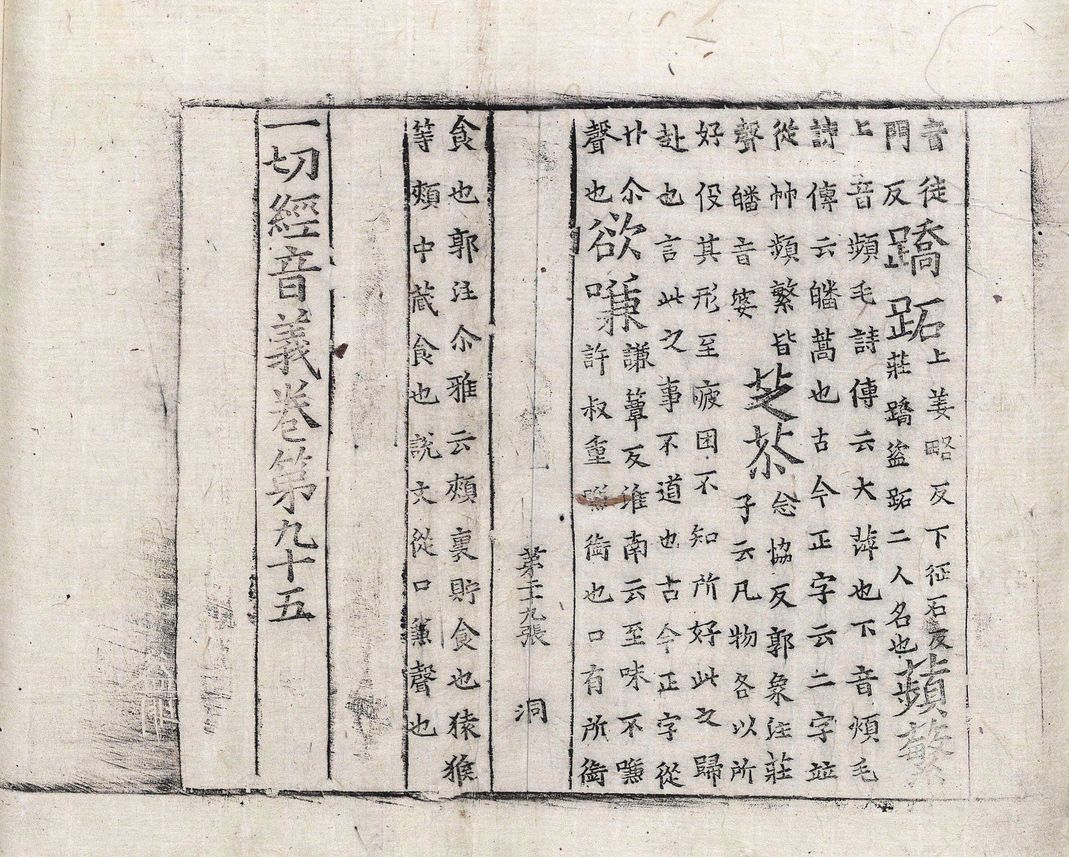 音徒
門反
蹻跖
上姜略反下征石反
莊蹻盜跖二人名也
蘋蘩
上音頻毛詩傳云大蓱也下音煩毛
詩傳云皤蒿也古今正字云二字竝
從艸頻繁皆
聲皤音婆
芝苶
念協反郭象注莊
子云凡物各以所
好役其形至疲困不知所好此之歸
赴也言此之事不道也古今正字從
廾尒
聲也
欲嗛
謙簟反淮南云至味不嗛
許叔重嗛銜也口有所銜
第二十九張 洞
食也郭注尒雅云頰裏貯食也猿猴
等頰中藏食也說文從口兼聲也
一切經音義卷第九十五